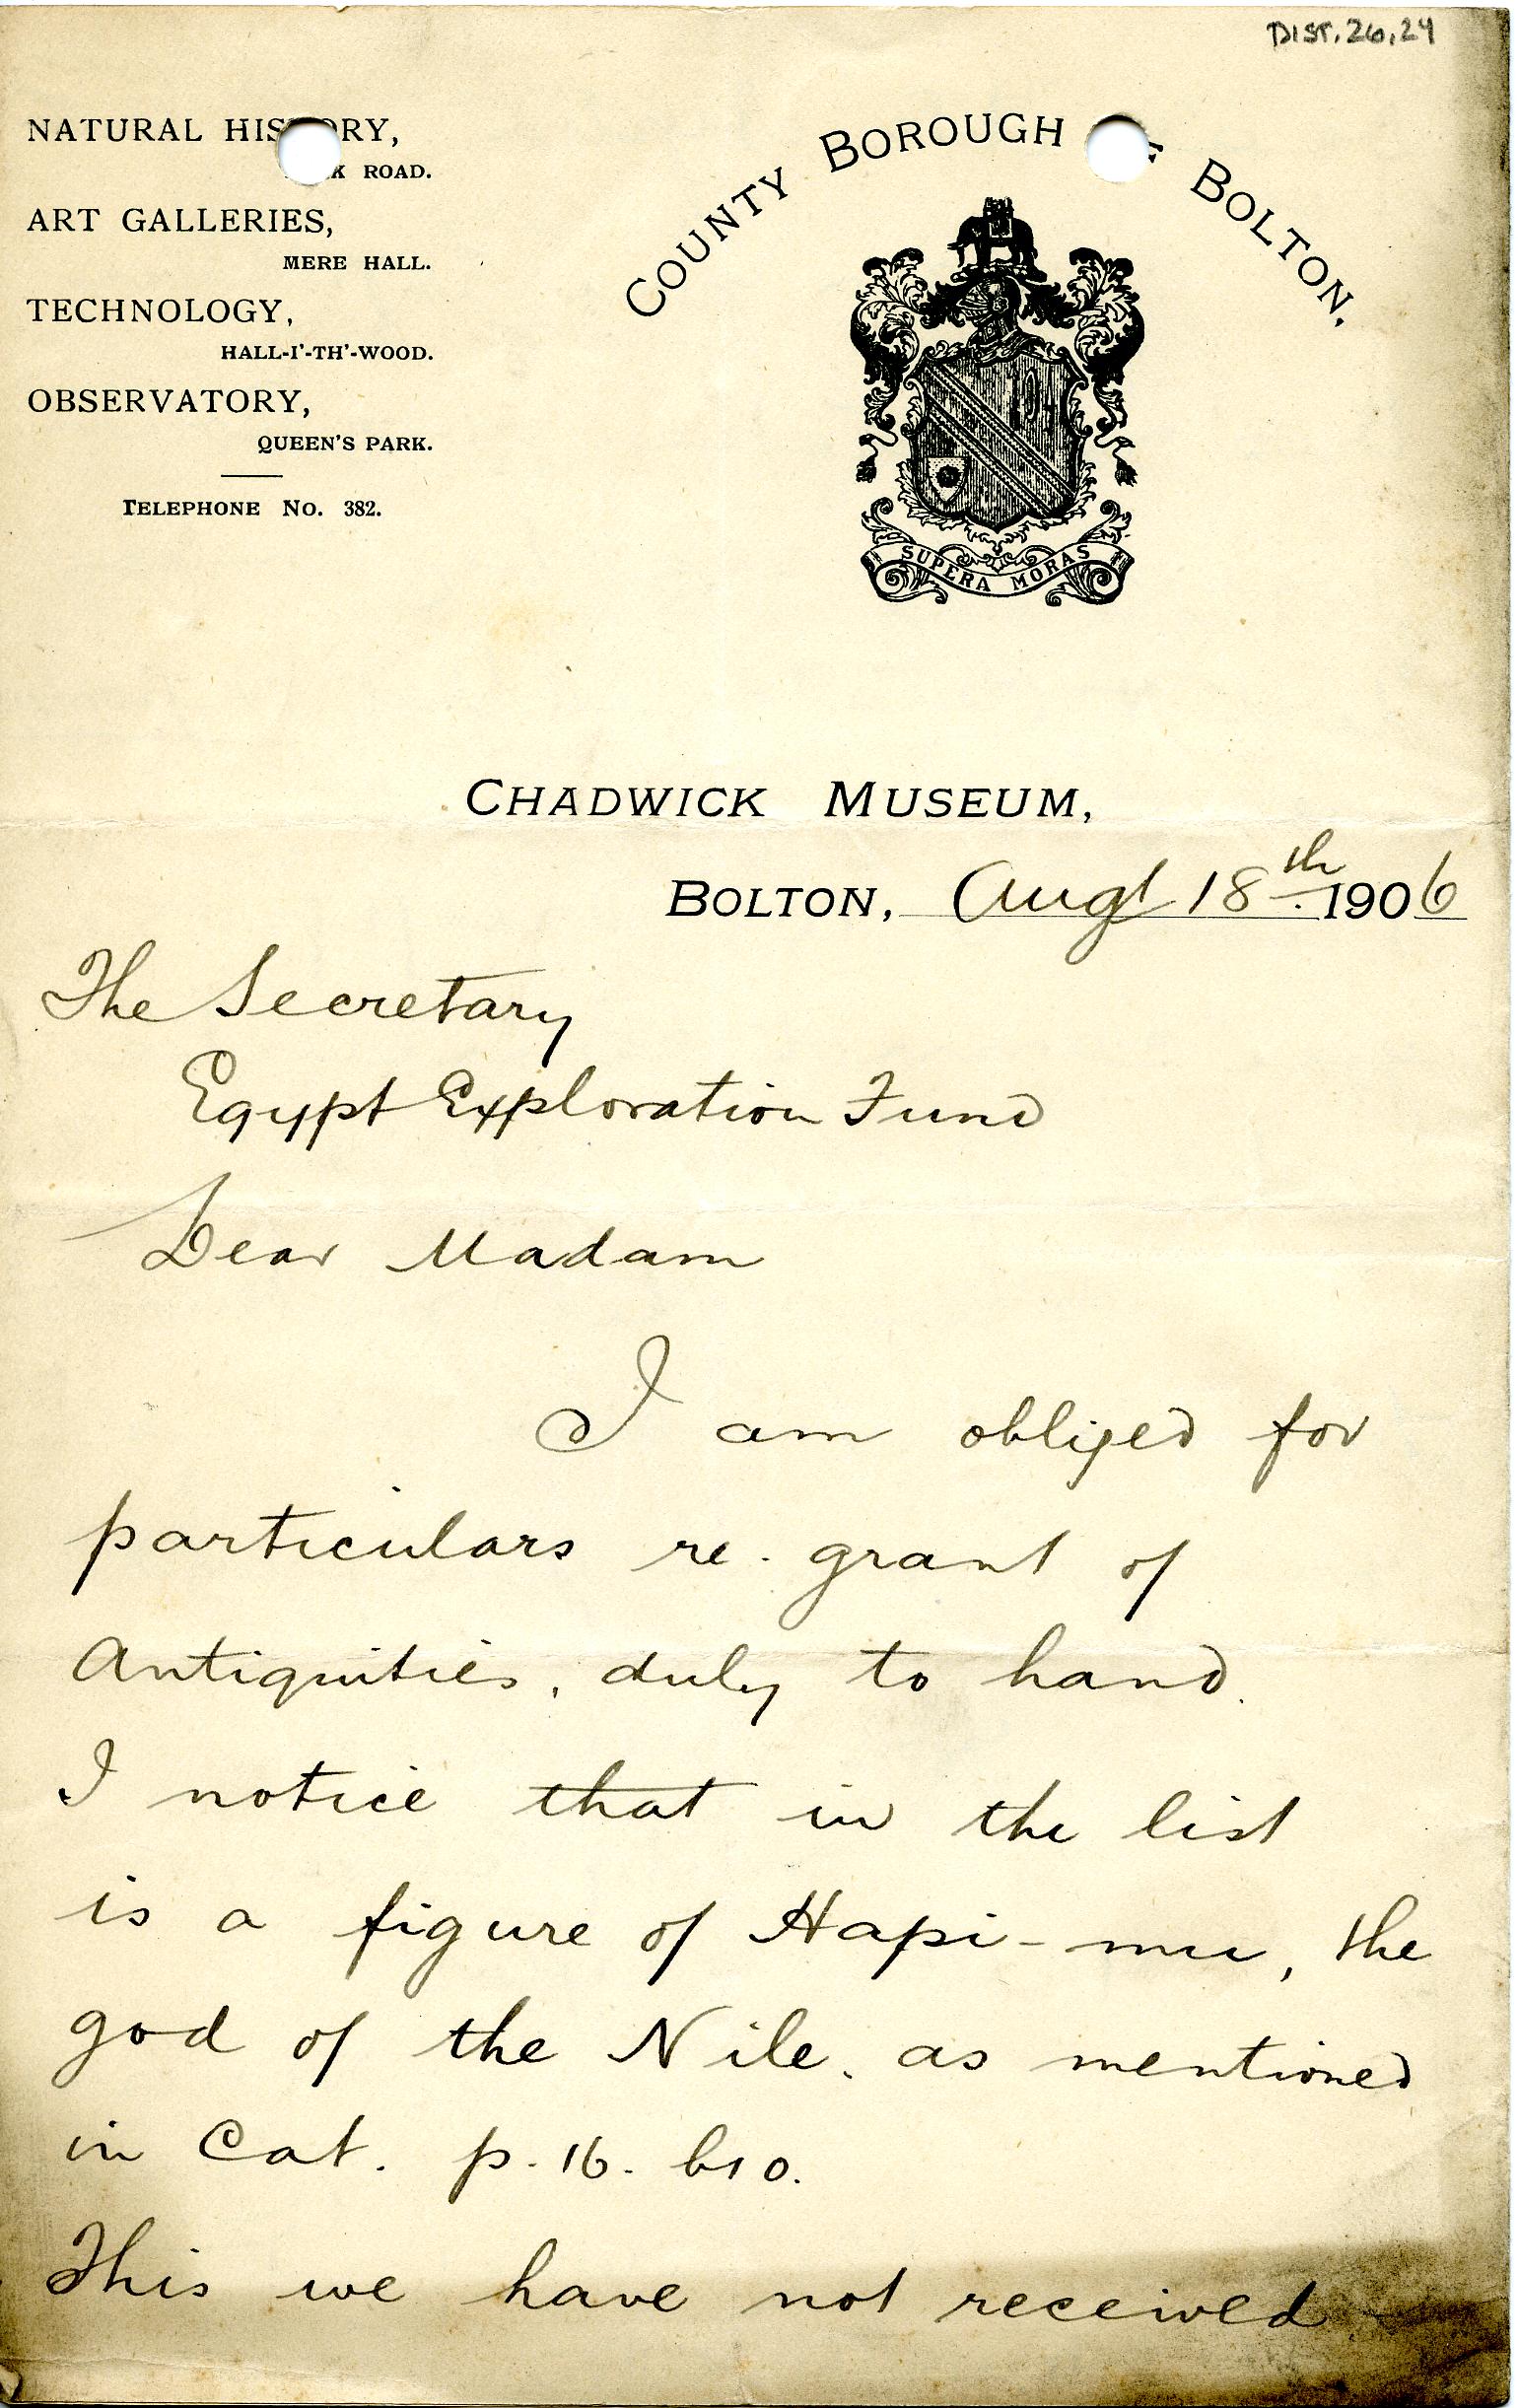 DIST. 26.24
NATURAL HISTORY,
ROAD.
ART GALLERIES,
MERE HALL.
TECHNOLOGY,
HALL-I'-TH'-WOOD.
OBSERVATORY,
QUEEN'S PARK.
TELEPHONE NO. 382.
COUNTY BOROUGH OF BOLTON.
SUPERA MORAS
CHADWICK MUSEUM,
BOLTON, Augt 18th. 1906
The Secretary
Egypt Exploration Fund
Dear Madam
I am obliged for
particulars re. grant of
Antiquities, duly to hand.
I notice that in the list
is a figure of Hapi-mu, the
god of the Nile. as mentioned
in Cat. p. 16. b10.
This we have not received.